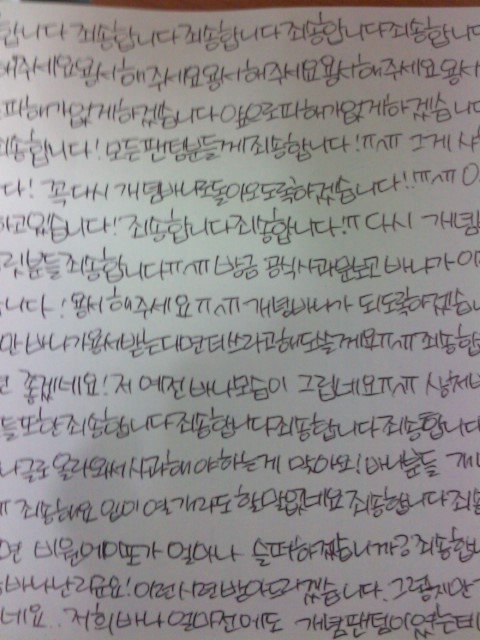 합니다 죄송합니다 죄송합니다 죄송합니다 죄송합니다
해주세요 용서해 주세요 용서해주세요 용서해주세요 용서
피해가 없게 하겠습니다 앞으로 피해가 없게 하겠습니다
죄송합니다! 모든 팬텀분들께 죄송합니다!ㅠㅅㅠ 그게 사
다! 꼭 다시 개념바나로 돌아오도록하겠습니다!!ㅠㅅㅠ
하고있습니다! 죄송합니다 죄송합니다!ㅠ 다시 개념
분들 죄송합니다ㅠㅅㅠ 방금 공식사과문보고 바나가 이
니다! 용서해주세요ㅠㅅㅠ 개념바나가 되도록하겠습니
만 바나가 용서받는대면 더쓰라고해도쓸게요ㅠㅅㅠ 죄송합
면 좋겠네요! 저 예전 바나모습이 그립네요ㅠㅅㅠ 상처
들또한 죄송합니다 죄송합니다 죄송합니다 죄송합니다
나 글로 올라와서 사과해야하는게 맞아요! 바나분들 개
죄송해요 입이 여개라도 할말없네요 죄송합니다 죄송
면 비원에이포가 얼마나 슬퍼하겠습니까? 죄송합니
바나난리요! 이런시면받아오라겠습니다. 그렇지만
네요.. 저희 바나 얼마전에도 개념팬텀이였는데